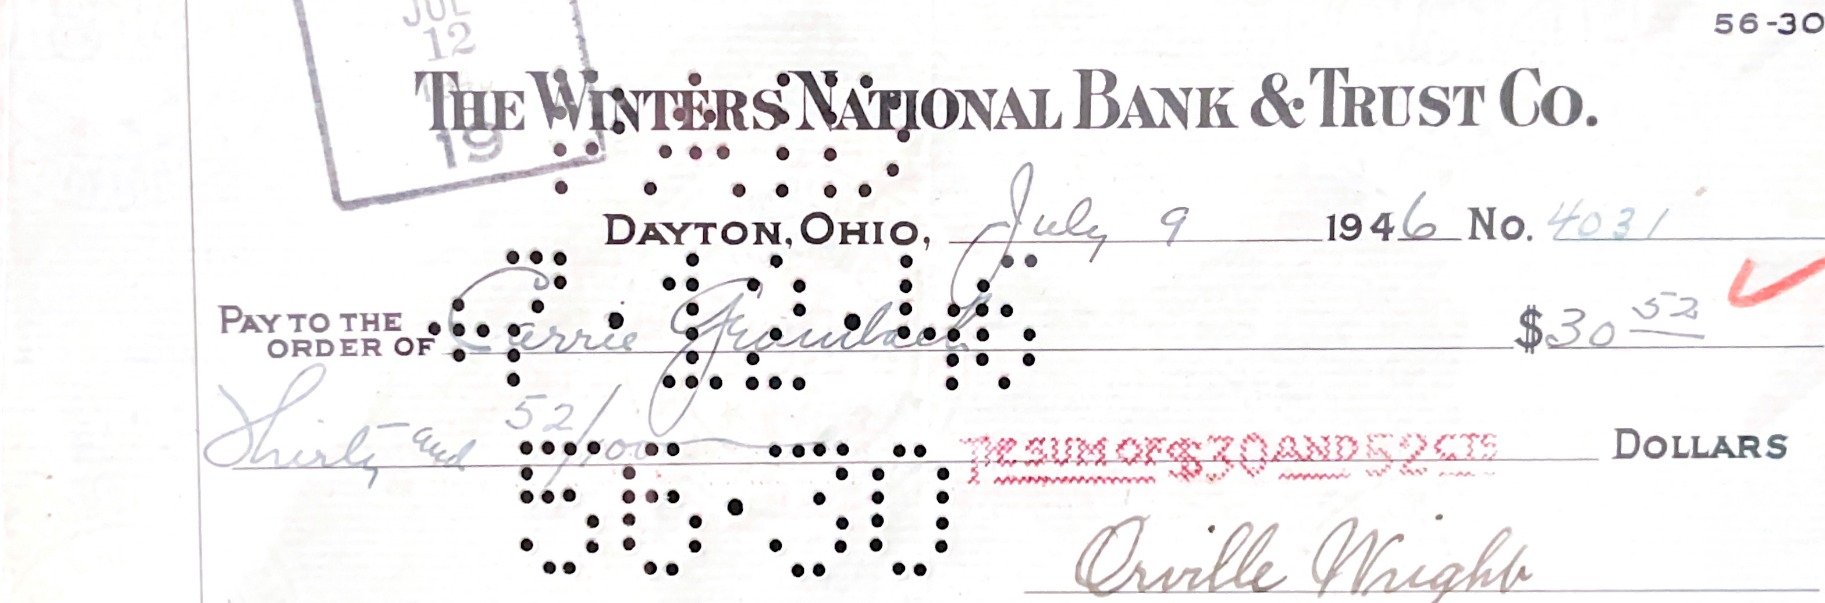 56-30
JUL
12
19
THE WINTERS NATIONAL BANK & TRUST CO.
DAYTON, OHIO, July 9 1946 No. 4031
PAY TO THE ORDER OF Carrie Grumbach $30 52
Thirty and 52/100 THE SUM OF $30 AND 52 CTS DOLLARS
56-30
Orville Wright